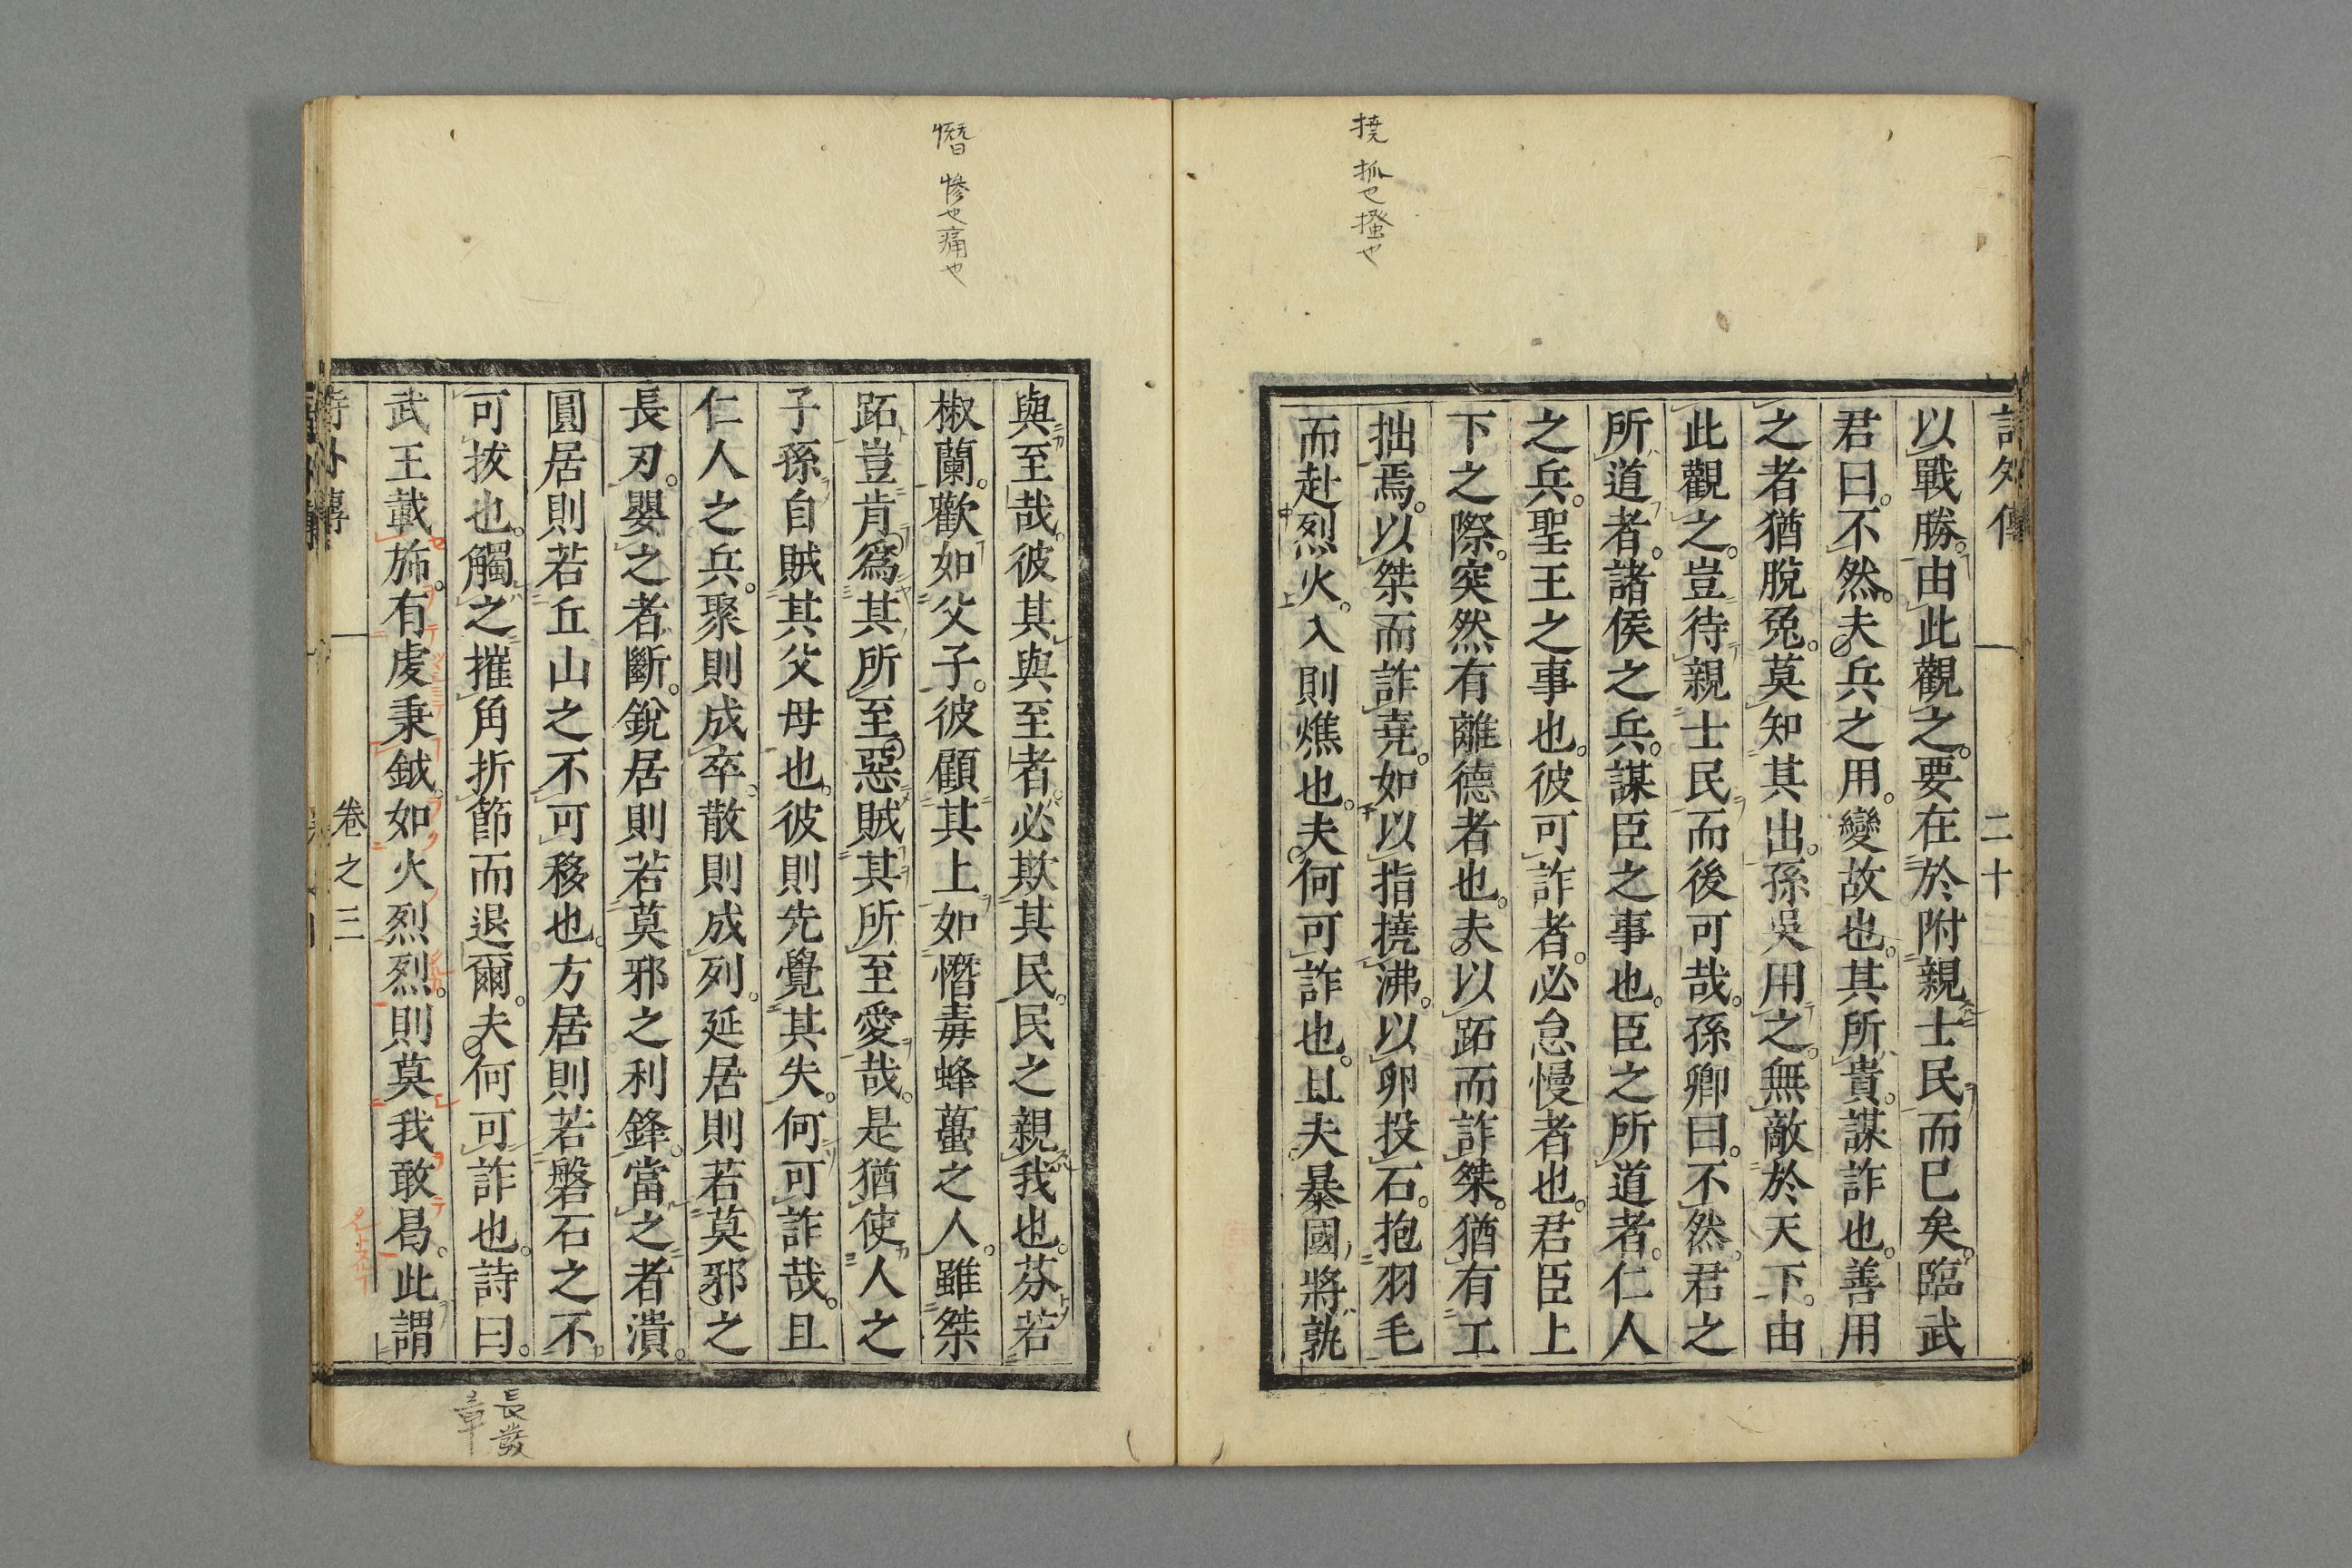 撓 抓也搔也
詩外傳 二十
以戰勝。由此觀之。要在於附親士民而已矣。臨武
君曰。不然。夫兵之用。變故也。其所貴。謀詐也。善用
之者猶脫兔。莫知其出。孫吳用之。無敵於天下。由
此觀之。豈待親士民而後可哉。孫卿曰。不然。君之
所道者。諸侯之兵。謀臣之事也。臣之所道者。仁人
之兵。聖王之事也。彼可詐者。必怠慢者也。君臣上
下之際。突然有離德者也。夫以跖而詐桀。猶有工
拙焉。以桀而詐堯。如以指撓沸。以卵投石。抱羽毛
而赴烈火。入則燋也。夫何可詐也。且夫暴國將孰
憯 慘也痛也
與至哉。彼其與至者。必欺其民。民之親我也。芬若
椒蘭。歡如父子。彼顧其上如憯毒蜂蠆之人。雖桀
跖豈肯爲其所至惡賊其所至愛哉。是猶使人之
子孫自賊其父母也。彼則先覺其失。何可詐哉。且
仁人之兵。聚則成卒。散則成列。延居則若莫邪之
長刃。嬰之者斷。銳居則若莫邪之利鋒。當之者潰。
圓居則若丘山之不可移也。方居則若磐石之不
可拔也。觸之摧角折節而退爾。夫何可詐也。詩曰。
武王載旆。有虔秉鉞。如火烈烈。則莫我敢曷。此謂
詩外傳 卷之三
長發
章